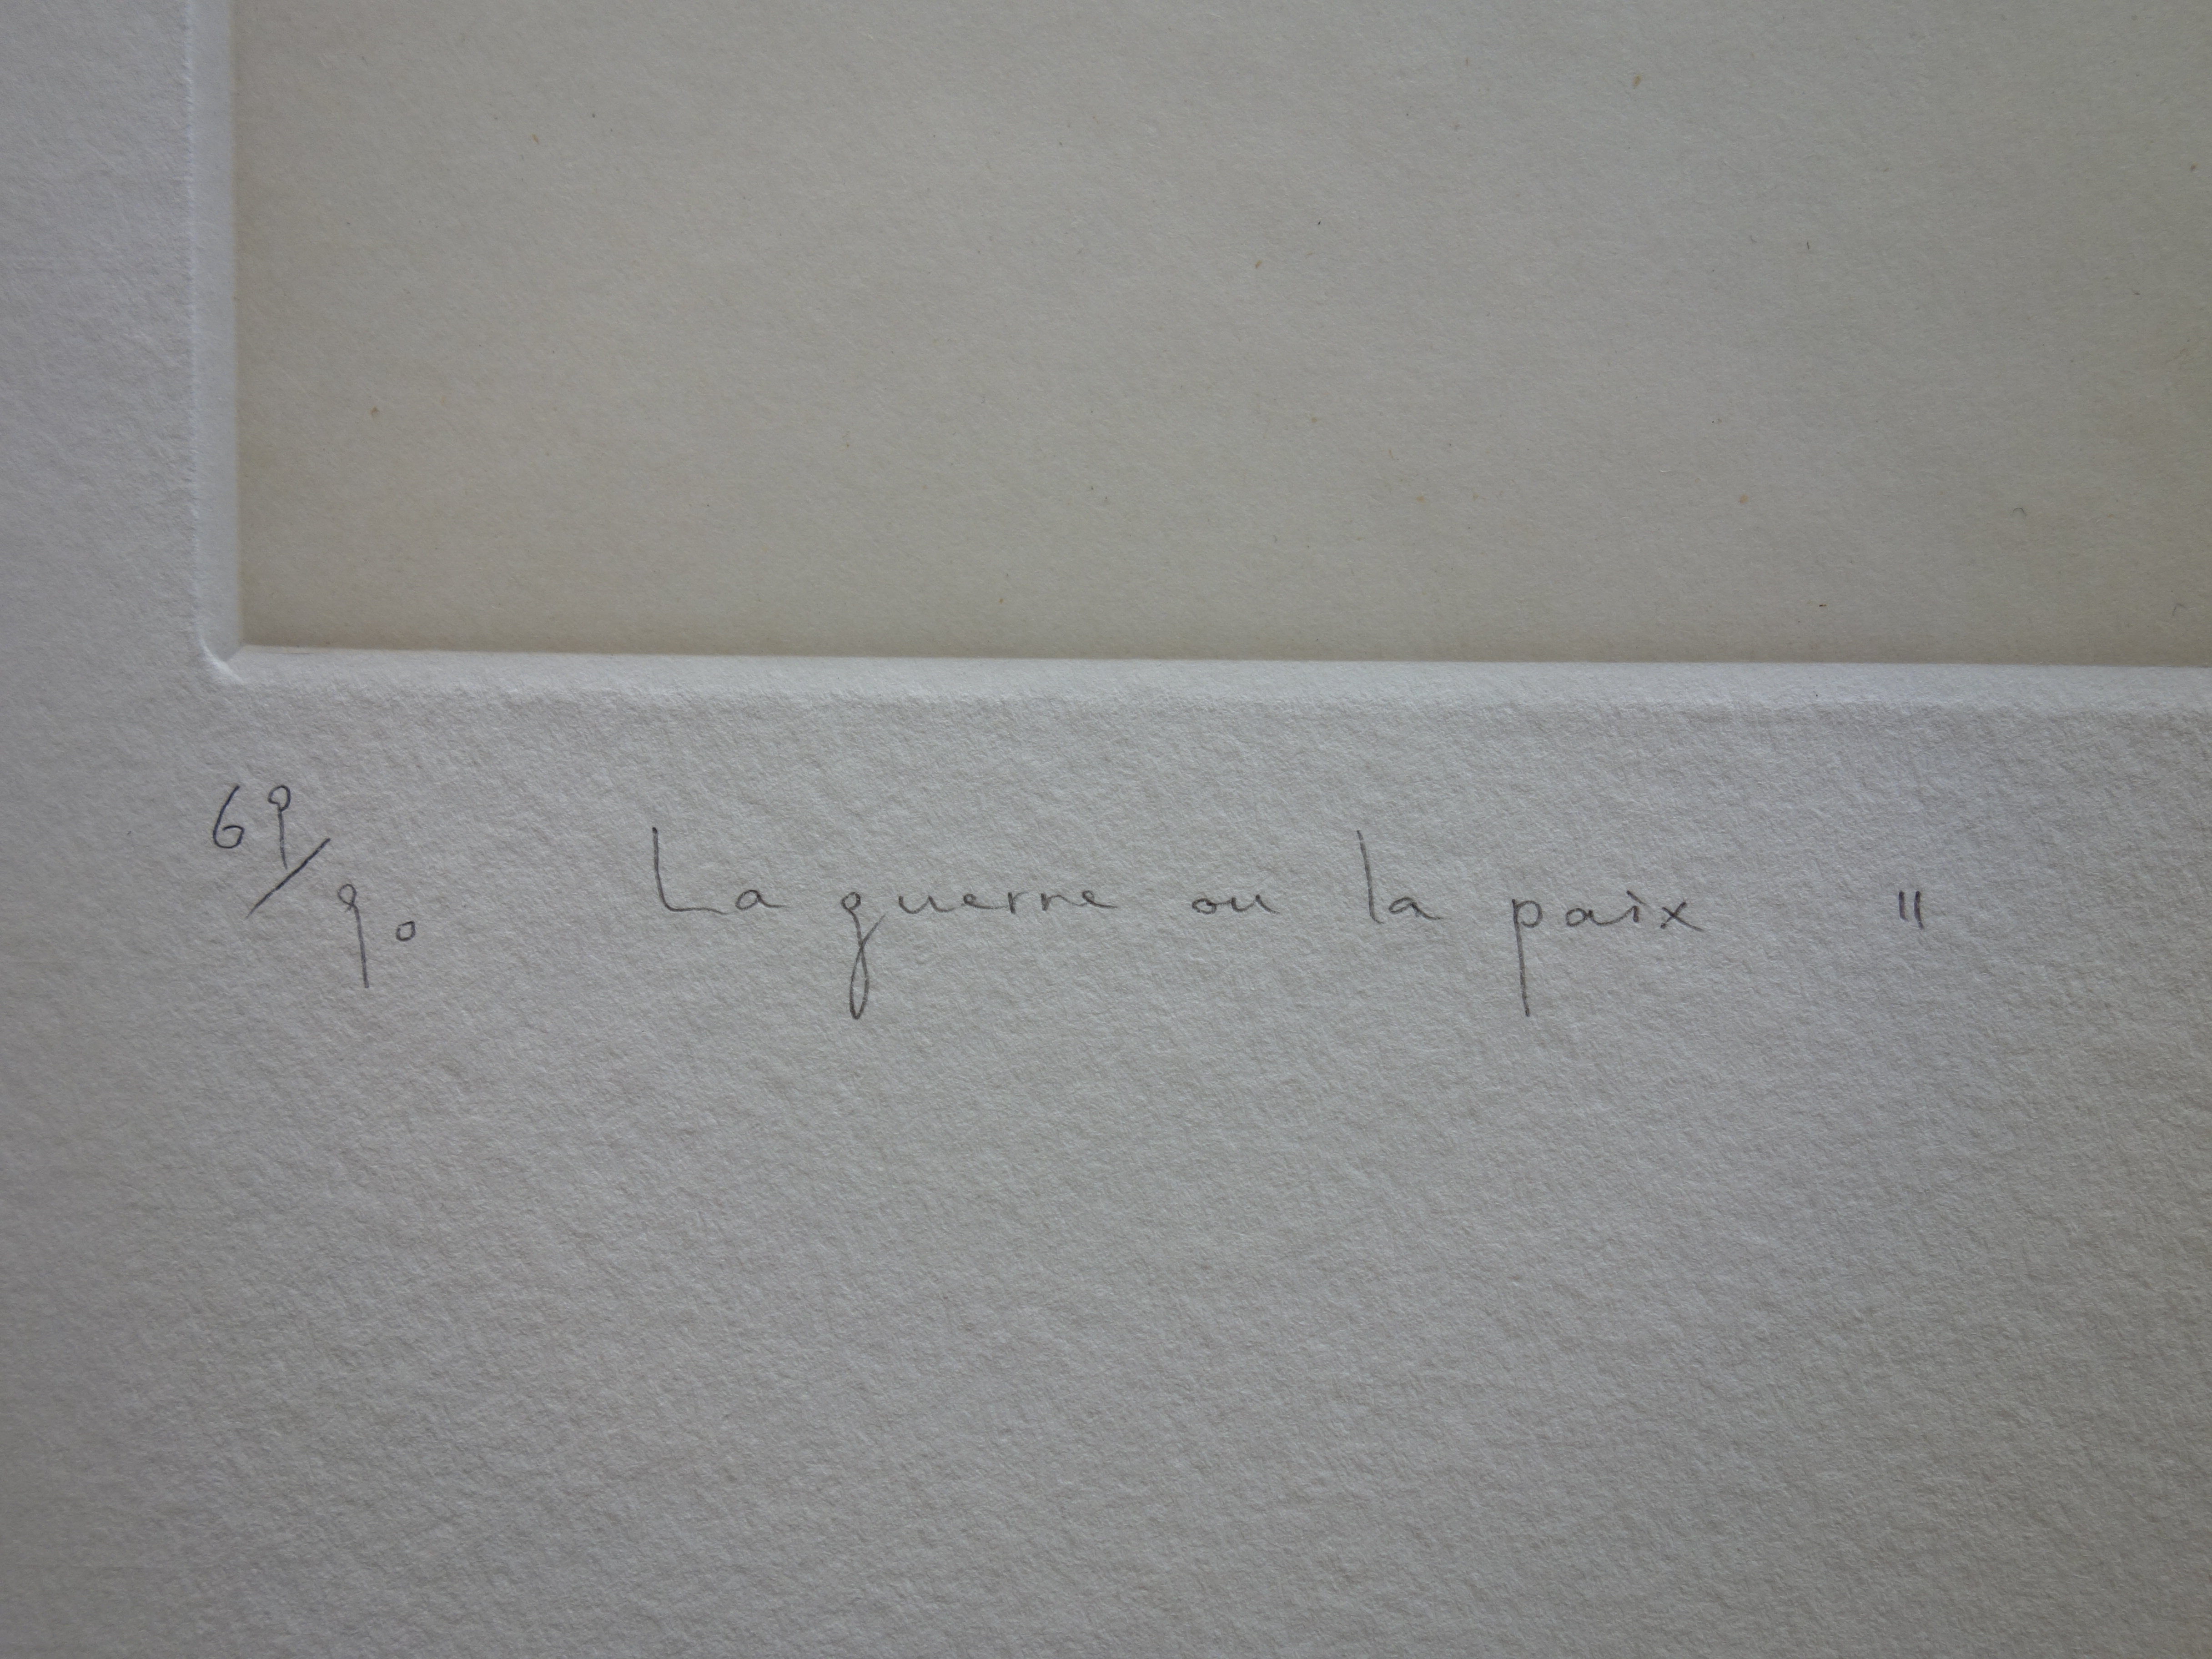 69/90 La guerre ou la paix "